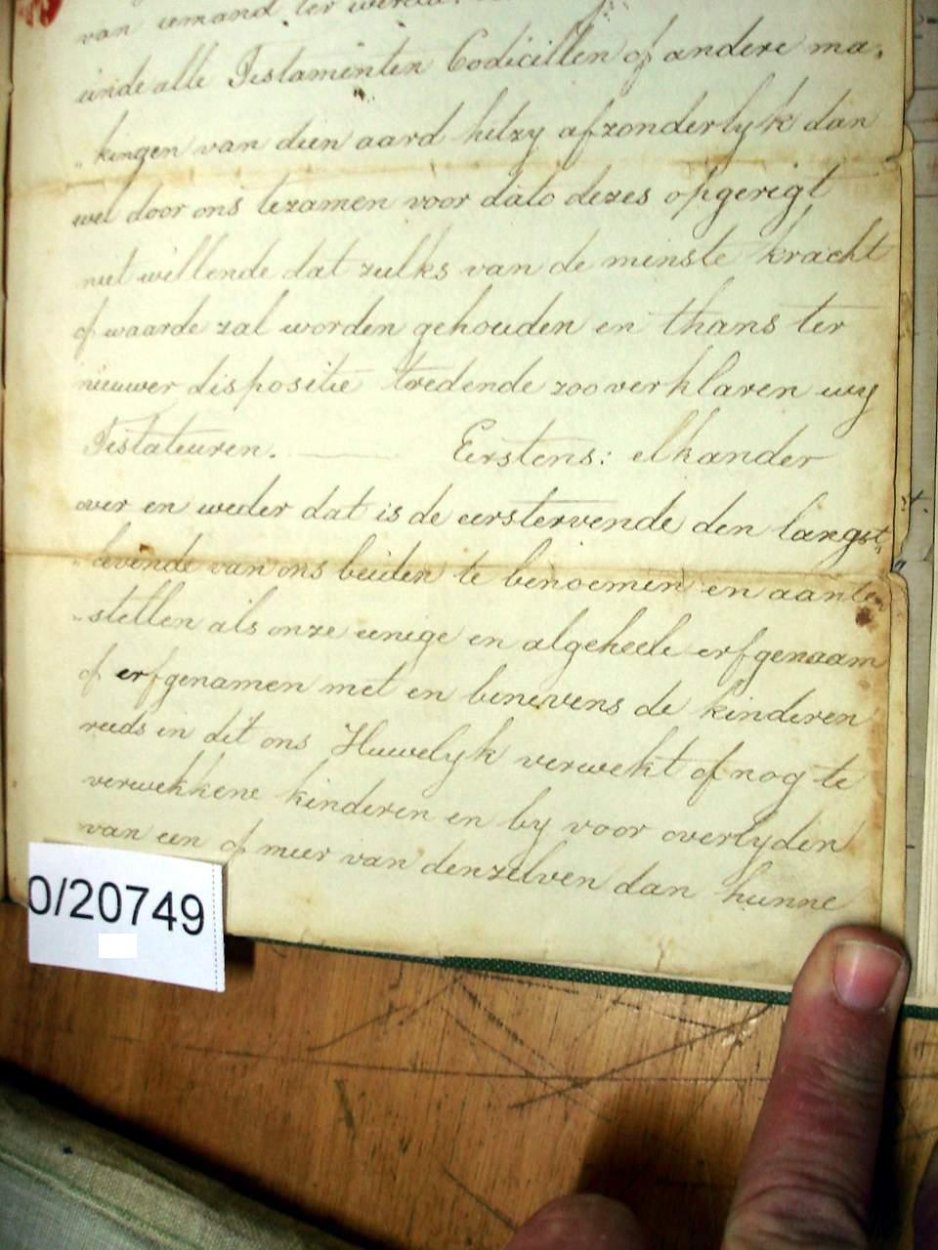 van iemand ter wereld.
einde alle Testamenten Codicillen of andere ma„
„kingen van dien aard hetzy afzonderlyk dan
wel door ons tezamen voor dato dezes opgeregt
niet willende dat zulks van de minste kracht
of waarde zal worden gehouden en thans ter
nieuwer dispositie tredende zoo verklaren wy
Testateuren. —— Eerstens: elkander
over en weder dat is de eerstervende den langst„
„levende van ons beiden te benoemen en aante„
„stellen als onze eenige en algeheele erfgenaam
of erfgenamen met en benevens de kinderen
reeds in dit ons Huwelyk verwekt of nog te
verwekkene kinderen en by voor overlyden
van een of meer van denzelven dan hunne
0/20749